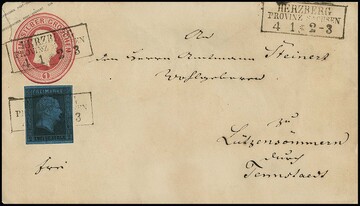 HERZBERG
PROVINZ SACHSEN
4 1 2-3
HERZBERG
PROVINZ
4 1
FREIMARKE
3
An
den Herrn Amtmann Steinert
Wohlgeboren
zu
Lützensömmern
durch
Tennstaedt
frei